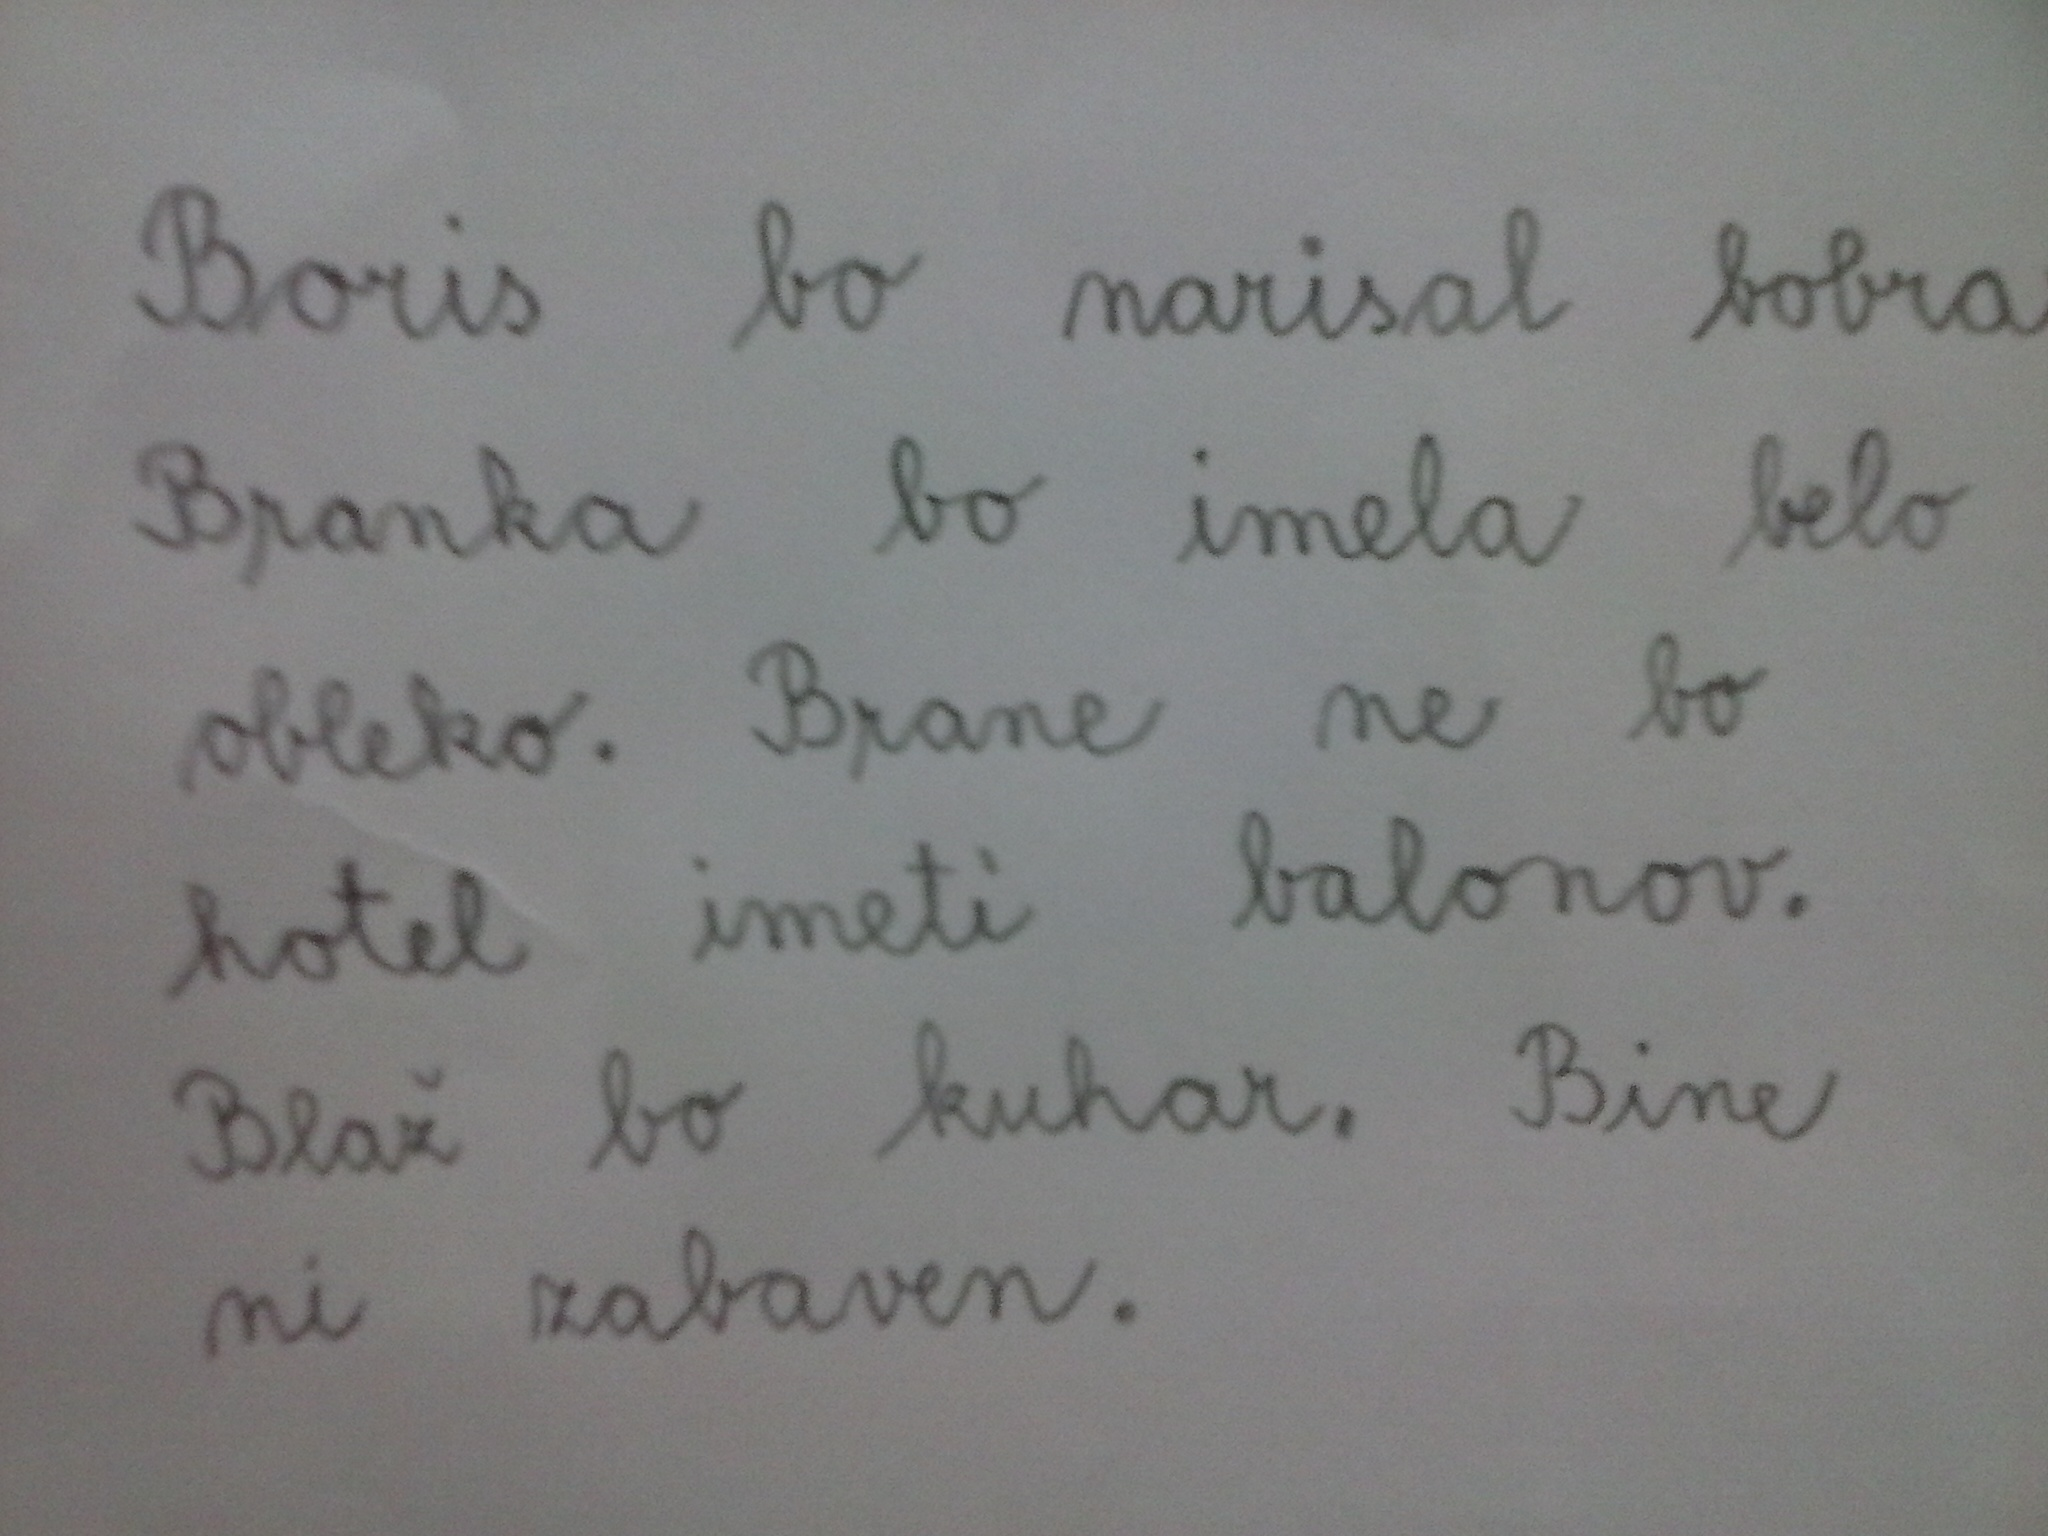 Boris bo narisal bobra
Branka bo imela belo
obleko. Brane ne bo
hotel imeti balonov.
Blaž bo kuhar. Bine
ni zabaven.